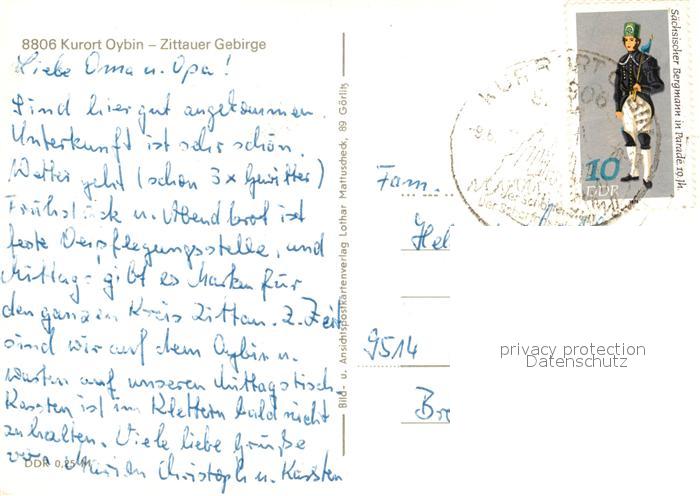 8806 Kurort Oybin – Zittauer Gebirge
Liebe Oma u. Opa!
Sind hier gut angekommen.
Unterkunft ist sehr schön.
Wetter geht (schon 3x Gewitter)
Frühstück u. Abendbrot ist
feste Verpflegungsstelle, und
Mittag - gibt es Marken für
den ganzen Kreis Zittau. Z. Zeit
sind wir auf dem Oybin u.
warten auf unseren Mittagstisch.
Karsten ist im Klettern bald nicht
zuhalten. Viele liebe Grüße
Christoph u. Karsten
DDR 0,25 M
Bild- u. Ansichtspostkartenverlag Lothar Mattuscheck, 89 Görlitz
Fam.
Hel
9514
KURORT O
8806
Sächsischer Bergmann in Parade 19. Jh.
10
DDR
privacy protection
Datenschutz